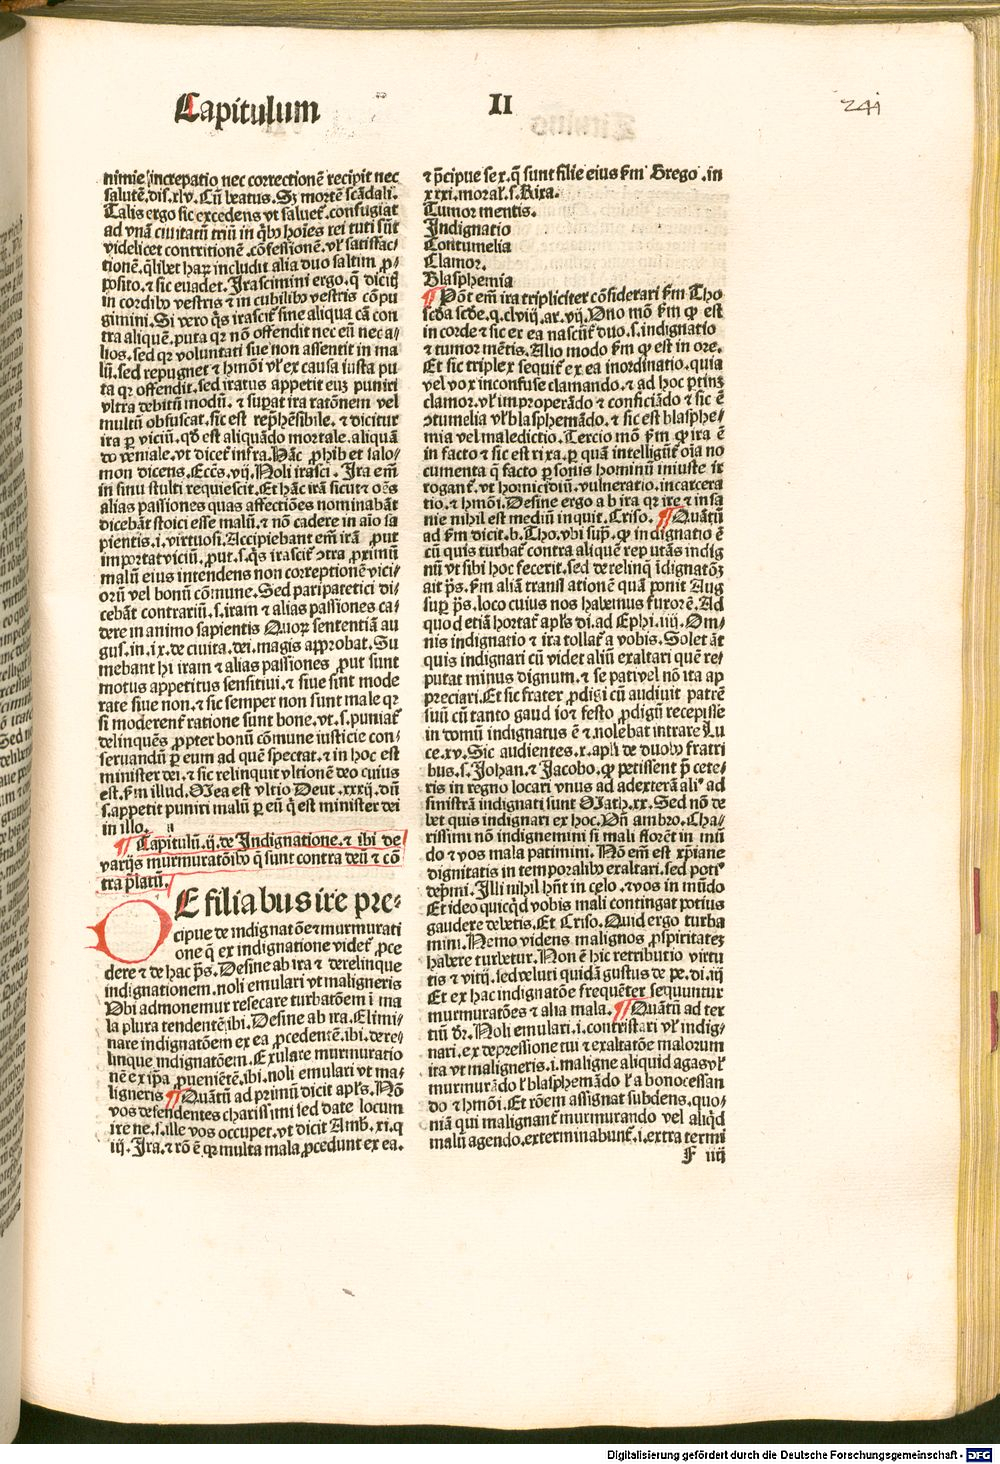 Capitulum
II
241
nimie increpatio nec correctionē recipit nec
salutē.dis.xlv. Cū beatus. Sz mortē scādali.
Talis ergo sic excedens vt saluet᷑. confugiat
ad vnā ciuitatū triū in q̄bꝰ hoīes rei tuti sūt
videlicet contritionē.cōfessionē.vł satisfac/
tionē.q̄libet haꝝ includit alia duo saltum ꝓ/
posito.⁊ sic euadet. Irascimini ergo.q̄ dicitꝭ
in cordibꝰ vestris ⁊ in cubilibꝰ vestris cōpū
gimini. Si vero q̄s irascit᷑ sine aliqua cā con
tra aliquē.puta qꝛ nō offendit nec eū nec a/
lios.sed qꝛ voluntati sue non assentit in ma
lū.sed repugnet ⁊ hmōi vł ex causa iusta pu
ta qꝛ offendit.sed iratus appetit euꝫ puniri
vltra debitū modū. ⁊ supat ira ratōnem vel
multū obfuscat.sic est rep̄hēsibile. ⁊ dicitur
ira ꝑ viciū.qd est aliquādo mortale.aliquā
do veniale.vt dicet᷑ infra. Hāc ꝓhibet salo/
mon dicens. Eccēs.vij. Noli irasci. Ira em̄
in sinu stulti requiescit. Et hāc irā sicut ⁊ oēs
alias passiones quas affectiōes nominabāt
dicebāt stoici esse malū.⁊ nō cadere in aīo sa
pientis.i.virtuosi. Accipiebant em̄ irā ꝓut
importat viciū.ꝓut.s.q̄s irascit᷑ ↄtra ꝓximū
malū eius intendens non correptionē vici/
orū vel bonū cōmune. Sed paripatetici di/
cebāt contrariū.s.iram ⁊ alias passiones ca/
dere in animo sapientis Quoꝝ sententiā au
gus.in.ix.de ciuita.dei.magis approbat. Su
mebant hi iram ⁊ alias passiones ꝓut sunt
motus appetitus sensitiui.⁊ siue sint mode
rate siue non.⁊ sic semper non sunt male qꝛ
si moderent᷑ ratione sunt bone.vt.s.puniat᷑
delinquēs ꝓpter bonū cōmune iusticie con/
seruandū ꝑ eum ad quē spectat.⁊ in hoc est
minister dei.⁊ sic relinquit vltionē deo cuius
est.ẜm illud. Mea est vltio Deut.xxxij.dū
.s.appetit puniri malū ꝑ eū q̄ est minister dei
in illo.
¶ Capitulū.ij.de Indignatione.⁊ ibi de
varijs murmuratōibꝰ q̄ sunt contra deū ⁊ cō
tra p̄latū.
DE filiabus ire pre/
cipue de indignatōe⁊murmurati
one q̄ ex indignatione videt᷑ ꝓce
dere ⁊ de hac p̄s. Desine ab ira ⁊ derelinque
indignationem.noli emulari vt maligneris
Vbi admonemur resecare turbatōem ī ma
la plura tendentē.ibi. Desine ab ira. Elimi/
nare indignatōem ex ea ꝓcedentē.ibi.dere/
linque indignatōem. Exulare murmuratio
nē ex ip̄a ꝓueniētē.ibi.noli emulari vt ma/
ligneris ¶ Quātū ad primū dicit apłs. Nō
vos defendentes charissimi sed date locum
ire ne.s.ille vos occupet.vt dicit Amb.xi.q
iij. Ira.⁊ rō ē qꝛ multa mala ꝓcedunt ex ea.
⁊ p̄cipue sex.q̄ sunt filie eius ẜm Grego.in
xxxi.morał.s.Rixa.
Tumor mentis.
Indignatio
Contumelia
Clamor.
Blasphemia
¶ Pōt em̄ ira tripliciter cōsiderari ẜm Tho
scda scde.q.clviij.ar.vij. Vno mō ẜm ꝙ est
in corde ⁊ sic ex ea nascūt᷑ duo.s.indignatio
⁊ tumor mētis. Alio modo ẜm ꝙ est in ore.
Et sic triplex sequit᷑ ex ea inordinatio.quia
vel vox inconfuse clamando.⁊ ad hoc ptinꝫ
clamor.vł improperādo ⁊ conficiādo ⁊ sic ē
ↄtumelia vł blasphemādo.⁊ sic est blasphe/
mia vel maledictio. Tercio mō ẜm ꝙ ira ē
in facto ⁊ sic est rixa.ꝑ quā intelligūt᷑ oīa no
cumenta q̄ facto ꝑsonis hominū iniuste ir
rogant᷑.vt homicidiū.vulneratio.incarcera
tio.⁊ hmōi. Desine ergo ab ira qꝛ ire ⁊ insa
nie nihil est mediū inquit.Criso. ¶ Quātū
ad ẜm dicit.b.Tho.vbi supͣ. ꝙ indignatio ē
cū quis turbat᷑ contra aliquē reputās indig
nū vt sibi hoc fecerit.sed derelinq̄ īdignatōꝫ
ait p̄s.ẜm aliā translationē quā ponit Aug
sup p̄s.loco cuius nos habemus furorē. Ad
quod etiā hortat᷑ apłs di.ad Ephi.iiij. Om/
nis indignatio ⁊ ira tollat᷑ a vobis. Solet āt
quis indignari cū videt aliū exaltari quē re/
putat minus dignum.⁊ se pati vel nō ita ap
preciari. Et sic frater ꝓdigi cū audiuit patrē
suū cū tanto gaudio ⁊ festo ꝓdigū recepisse
in domū indignatus ē ⁊ nolebat intrare Lu
ce.xv. Sic audientes.x.apłi de duobꝰ fratri
bus.s.Johan.⁊ Jacobo.ꝙ petissent p̄ cete/
ris in regno locari vnus ad adexterā aliꝰ ad
sinistrā indignati sunt Math.xx. Sed nō de
bet quis indignari ex hoc. Vñ ambro. Cha/
rissimi nō indignemini si mali florēt in mū
do ⁊ vos mala patimini. Nō em̄ est xp̄iane
dignitatis in temporalibꝰ exaltari.sed potiꝰ
dep̄mi. Illi nihil hn̄t in celo.⁊ vos in mūdo
Et ideo quicq̄d vobis mali contingat potius
gaudere debetis. Et Criso. Quid ergo turba
mini. Nemo videns malignos ꝓspiritateꝫ
habere turbetur. Non ē hic retributio virtu
tis ⁊ vitij.sed veluti quidā gustus de pe.di.iij
Et ex hac indignatōe frequēter sequuntur
murmuratōes ⁊ alia mala. ¶ Quātū ad ter
tiū dr̄. Noli emulari.i.contristari vł indig/
nari.ex depressione tui ⁊ exaltatōe malorum
ita vt maligneris.i.maligne aliquid agas vł
murmurādo ł blasphemādo ł a bono cessan
do ⁊ hmōi. Et rōem assignat subdens.quo/
niā qui malignant᷑ murmurando vel aliq̄d
malū agendo.exterminabunt᷑.i.extra termi
F iiij
Digitalisierung gefördert durch die Deutsche Forschungsgemeinschaft - DFG